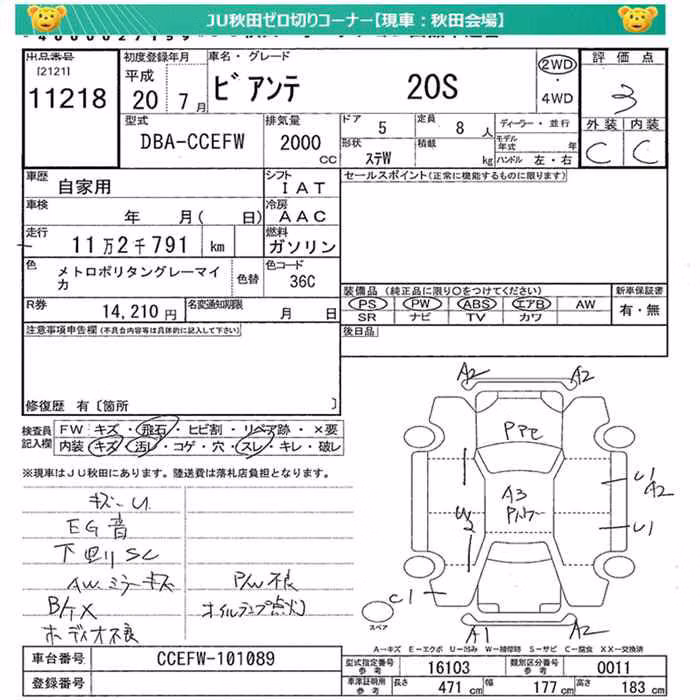 JU秋田ゼロ切りコーナー【現車：秋田会場】
出品番号
[2121]
11218
初度登録年月
平成
20 7月
車名・グレード
ビアンテ 20S
2WD
・
4WD
評価点
3
外装 内装
C C
型式
DBA-CCEFW
排気量
2000
CC
ドア 5
定員 8 人
形状 ステW
積載 kg
ディーラー・並行
モデル年式 年
ハンドル 左・右
車歴
自家用
シフト
IAT
車検
年 月( 日)
冷房
AAC
走行
11万2千791 km
燃料
ガソリン
色
メトロポリタングレーマイカ
色替
色コード
36C
R券
14,210円
名変通知期限
月 日
セールスポイント(正常に機能するものに限ります)
装備品(純正品に限り○をつけてください)
PS PW ABS エアB AW
SR ナビ TV カワ
新車保証書
有・無
後日品
注意事項申告欄(不具合内容等は具体的に記入して下さい)
修復歴 有〔箇所 〕
検査員記入欄
FW キズ・飛石・ヒビ割・リペア跡・×要
内装 キズ・汚レ・コゲ・穴・スレ・キレ・破レ
※現車はJU秋田にあります。陸送費は落札店負担となります。
キズーU
EG音
下廻りSC
AWミラーキズ
P/W不良
オイルランプ点灯
A2 A2
A3
U1
A2
U1
W2
C1
スペア
A1 A2
A−キズ E−エクボ U−凹み W−補修跡 S−サビ C−腐食 XX−交換済
車台番号
CCEFW-101089
登録番号
型式指定番号
参考
16103
類別区分番号
参考
0011
車庫証明用
参考
長さ 471 cm
幅 177 cm
高さ 183 cm